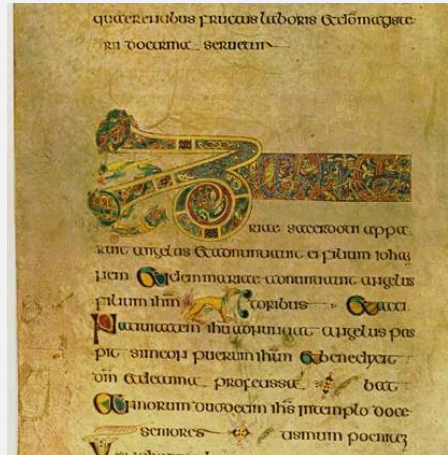 quaerentibus fructus laboris & domagiste
rii doctrina seruetur
ZACHA
riae sacerdoti appa
ruit angelus & adnuntiauit ei filium iohan
nem Eidem mariae adnuntiauit angelus
filium ihm toribus Et acci
Natiuitatem ihu adnuntiat angelus pas
pit simeon puerum ihm & benedicit
dm & de anna bat
norum duodecim ihs in templo doce
seniores tismum